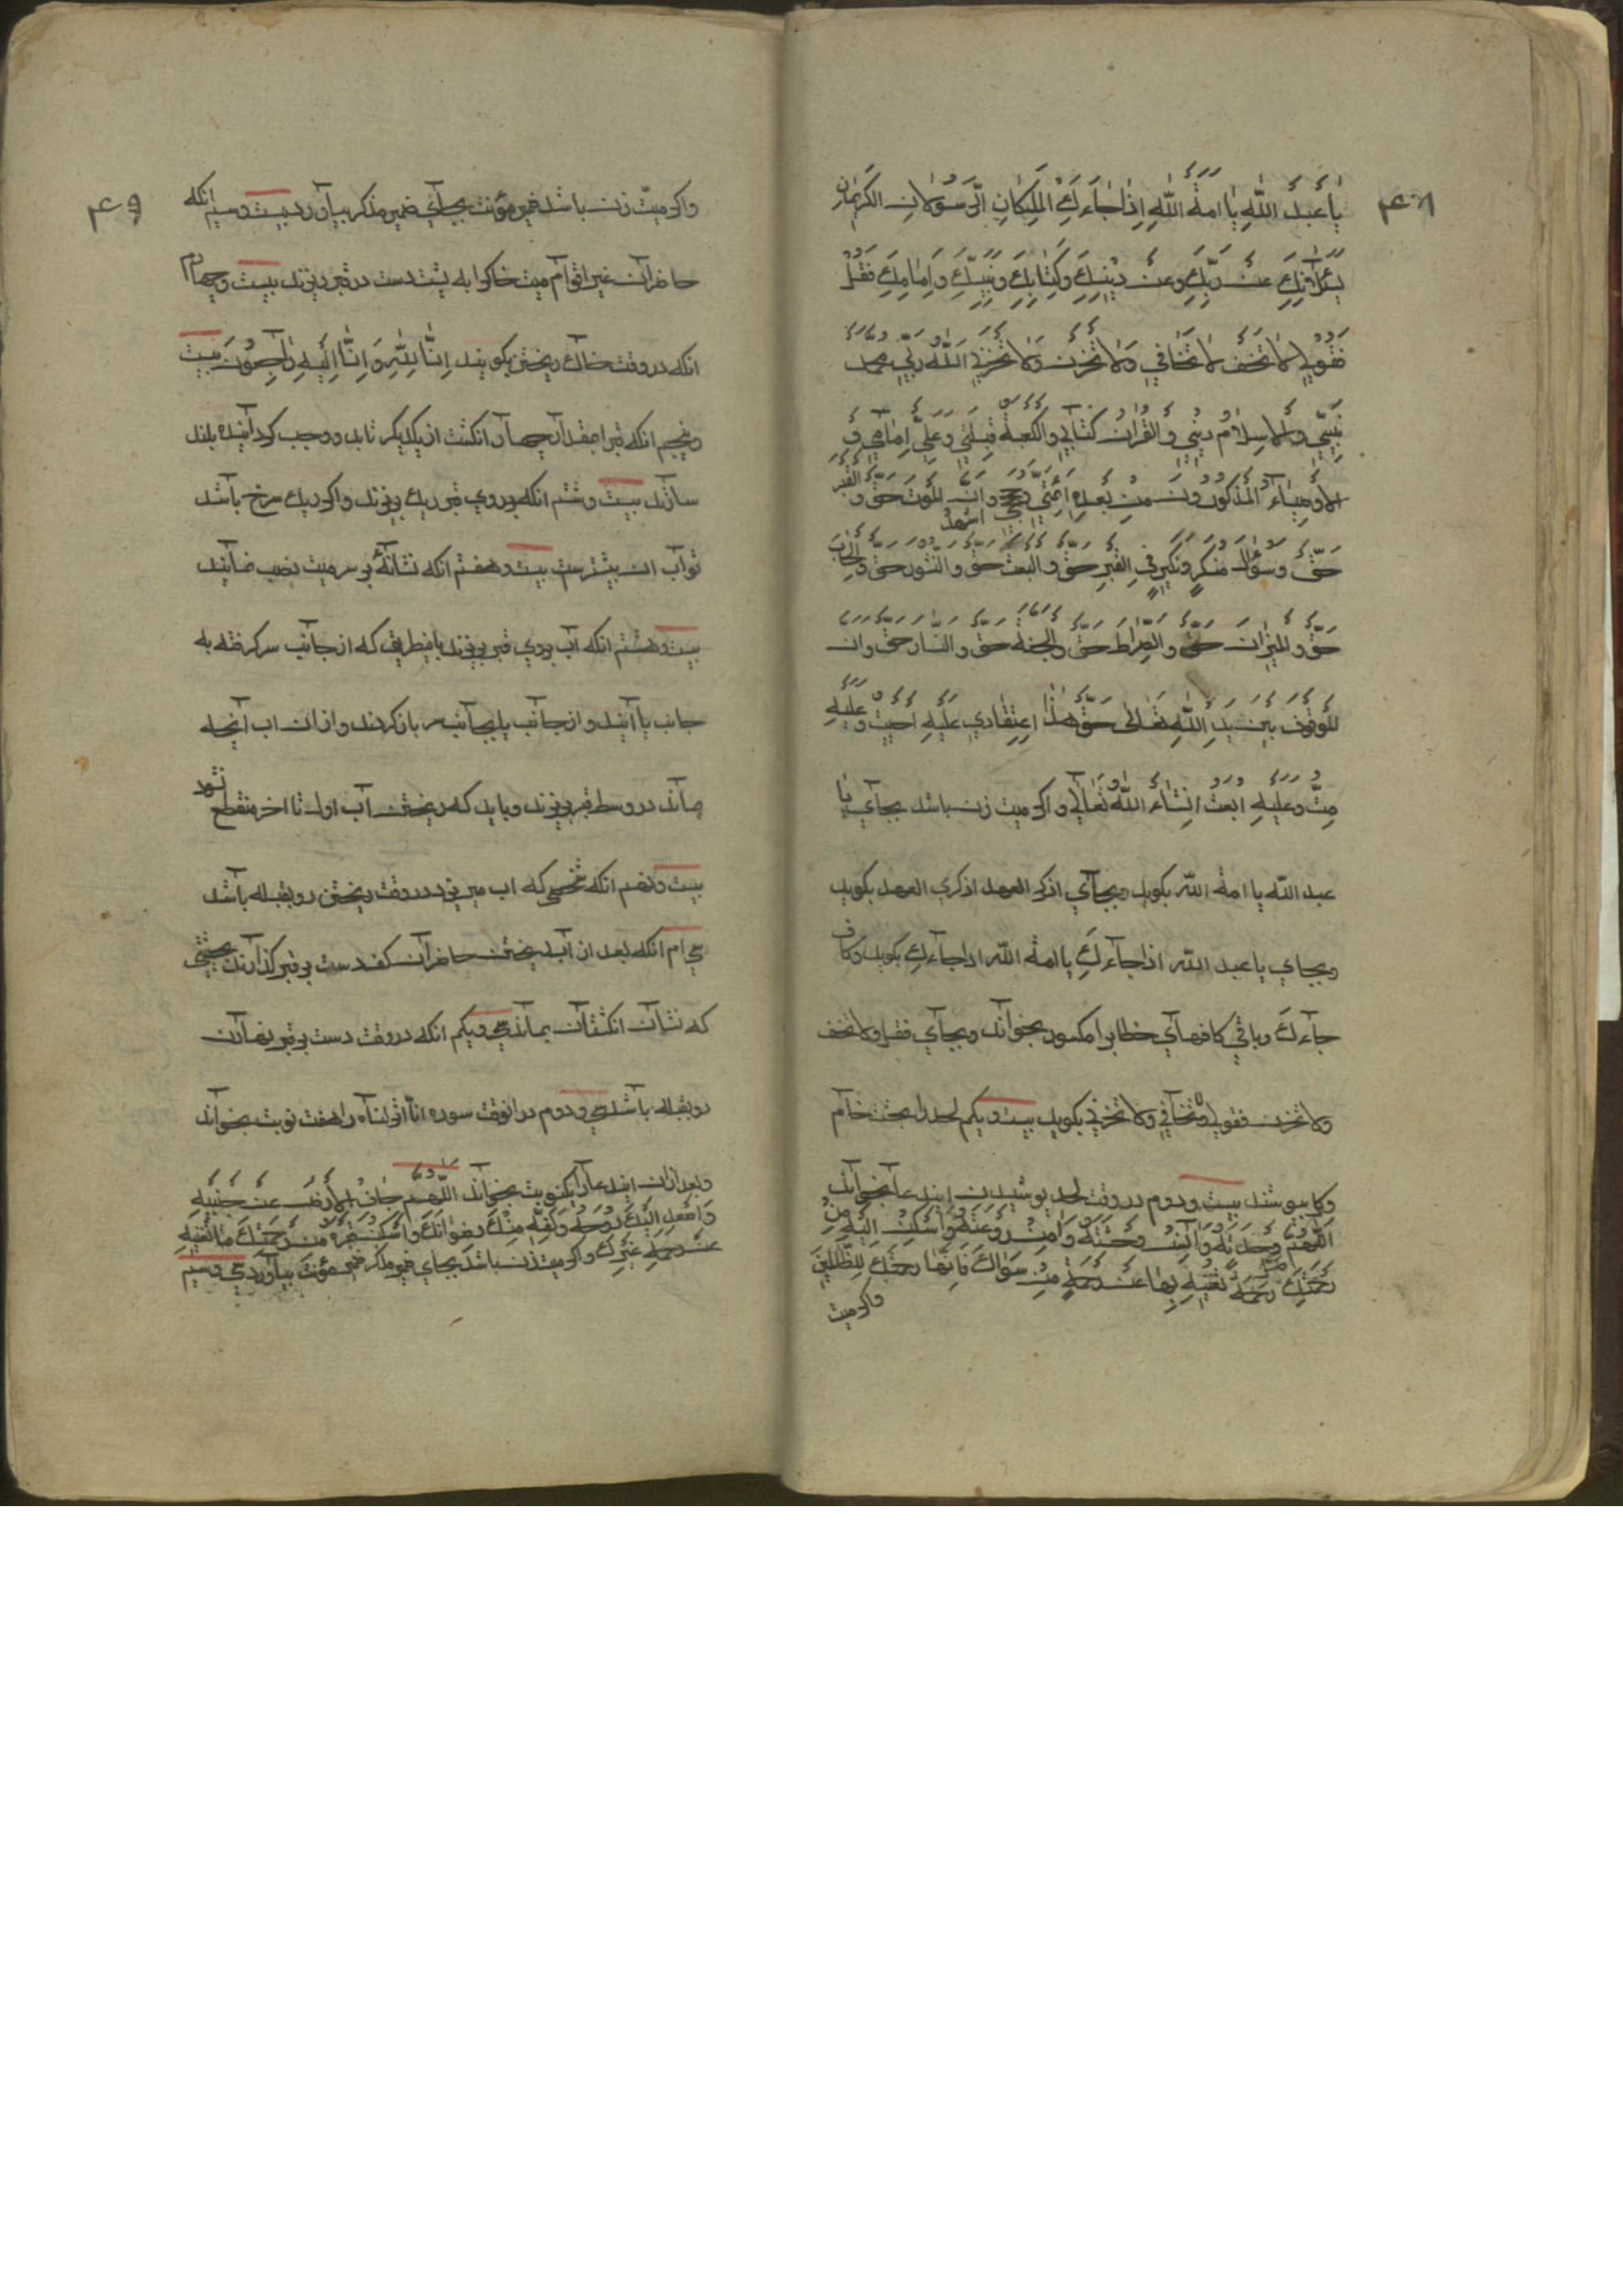 ۴۸
يا عبد الله يا امة الله اذا جاءك الملكان الرسولان الكريمان
يسئلانك عن ربك وعن دينك وكتابك ونبيك وامامك فقل
فقولي لا تخف لا تخافي ولا تحزن ولا تحزني الله ربي محمد
نبيي والاسلام ديني والقران كتابي والكعبة قبلتي وعلي امامي و
الاوصياء المذكورون من بعده ائمتي وان الموت حق والقبر
اشهد
حق وسؤال منكر ونكير في القبر حق والبعث حق والنشور حق والحساب
حق والميزان حق والصراط حق والجنة حق والنار حق وان
الوقوف بين يد الله تعالى حق هذا اعتقادي عليه احييت وعليه
مت وعليه ابعث انشاء الله تعالي واكر ميت زن باشد بجاي يا
عبد الله يا امة الله بكويد وبجاي اذكر العهد اذكري العهد بكويد
وبجاي يا عبد الله اذا جاءك يا امة الله اذا جاءك بكويد وكاف
جاءك وباقي كافهاي خطاب را مكسور بخواند وبجاي فقل ولا تخف
ولا تحزن فقولي ولا تخافي ولا تحزني بكويد بيست ويكم لحد را بخشت خام
وكل پوشند بيست ودوم در وقت لحد پوشيدن ايندعا بخواند
اللهم صل وحدته وانس وحشته وامن روعته واسكن اليه من
رحمتك رحمة تغنيه بها عن رحمة من سواك فانها رحمتك للظالمين
واكر ميت
۴۹
واكر ميت زن باشد ضمير مؤنث بجاي ضمير مذكر بياورد بيست وسيم انكه
حاضران غير اقوام ميت خاكرا به پشت دست در قبر ريزند بيست وچهارم
انكه در وقت خاك ريختن بكويند انا لله وانا اليه راجعون بيست
وپنجم انكه قبر را مقدار چهار انكشت از يكديكر تابد ووجب كردانيده بلند
سازند بيست وششم انكه بر روي قبر ريك بريزند واكر ريك سرخ باشد
ثواب ان بيشترست بيست وهفتم انكه نشانهٔ بر سر ميت نصب نمايند
بيست وهشتم انكه اب بر روي قبر بريزند باينطريق كه از جانب سر كرفته به
جانب پا آيند واز جانب پا بجانب سر باز كردند واز ان اب آنچه
ماند در وسط قبر بريزند وبايد كه ريختن آب اول تا اخر منقطع نشود
بيست ونهم انكه شخصي كه اب ميريزد در وقت ريختن رو بقبله باشد
سي ام انكه بعد از آب ريختن حاضران كف دست بر قبر كذارند بحيثيتي
كه نشان انكشتان بماند سي ويكم انكه در وقت دست بر قبر نهادن
رو بقبله باشد سي ودوم در انوقت سوره انا انزلناه را هفت نوبت بخواند
وبعد از ان ايندعا را يكنوبت بخواند اللهم جاف الارض عن جنبيه
واصعد اليك روحه ولقه منك رضوانك واسكن قبره من رحمتك ما تغنيه
عن رحمة غيرك واكر ميت زن باشد بجاي ضمير مذكر ضمير مؤنث بياورد سي وسيم